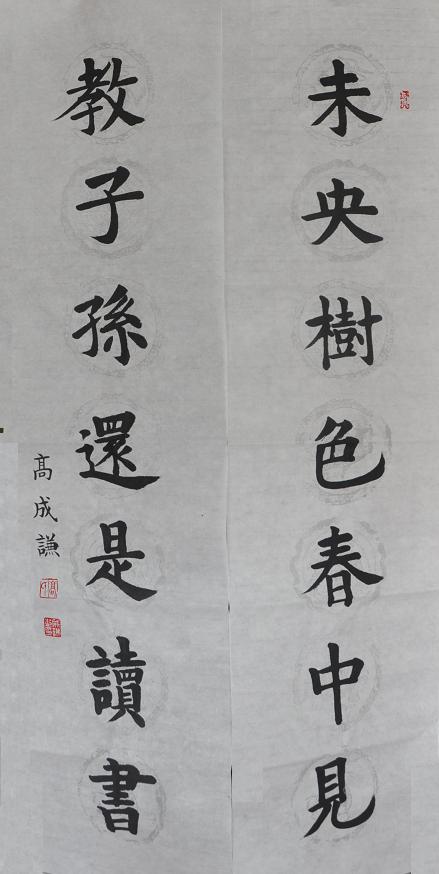 未央樹色春中見
教子孫還是讀書
高成謙